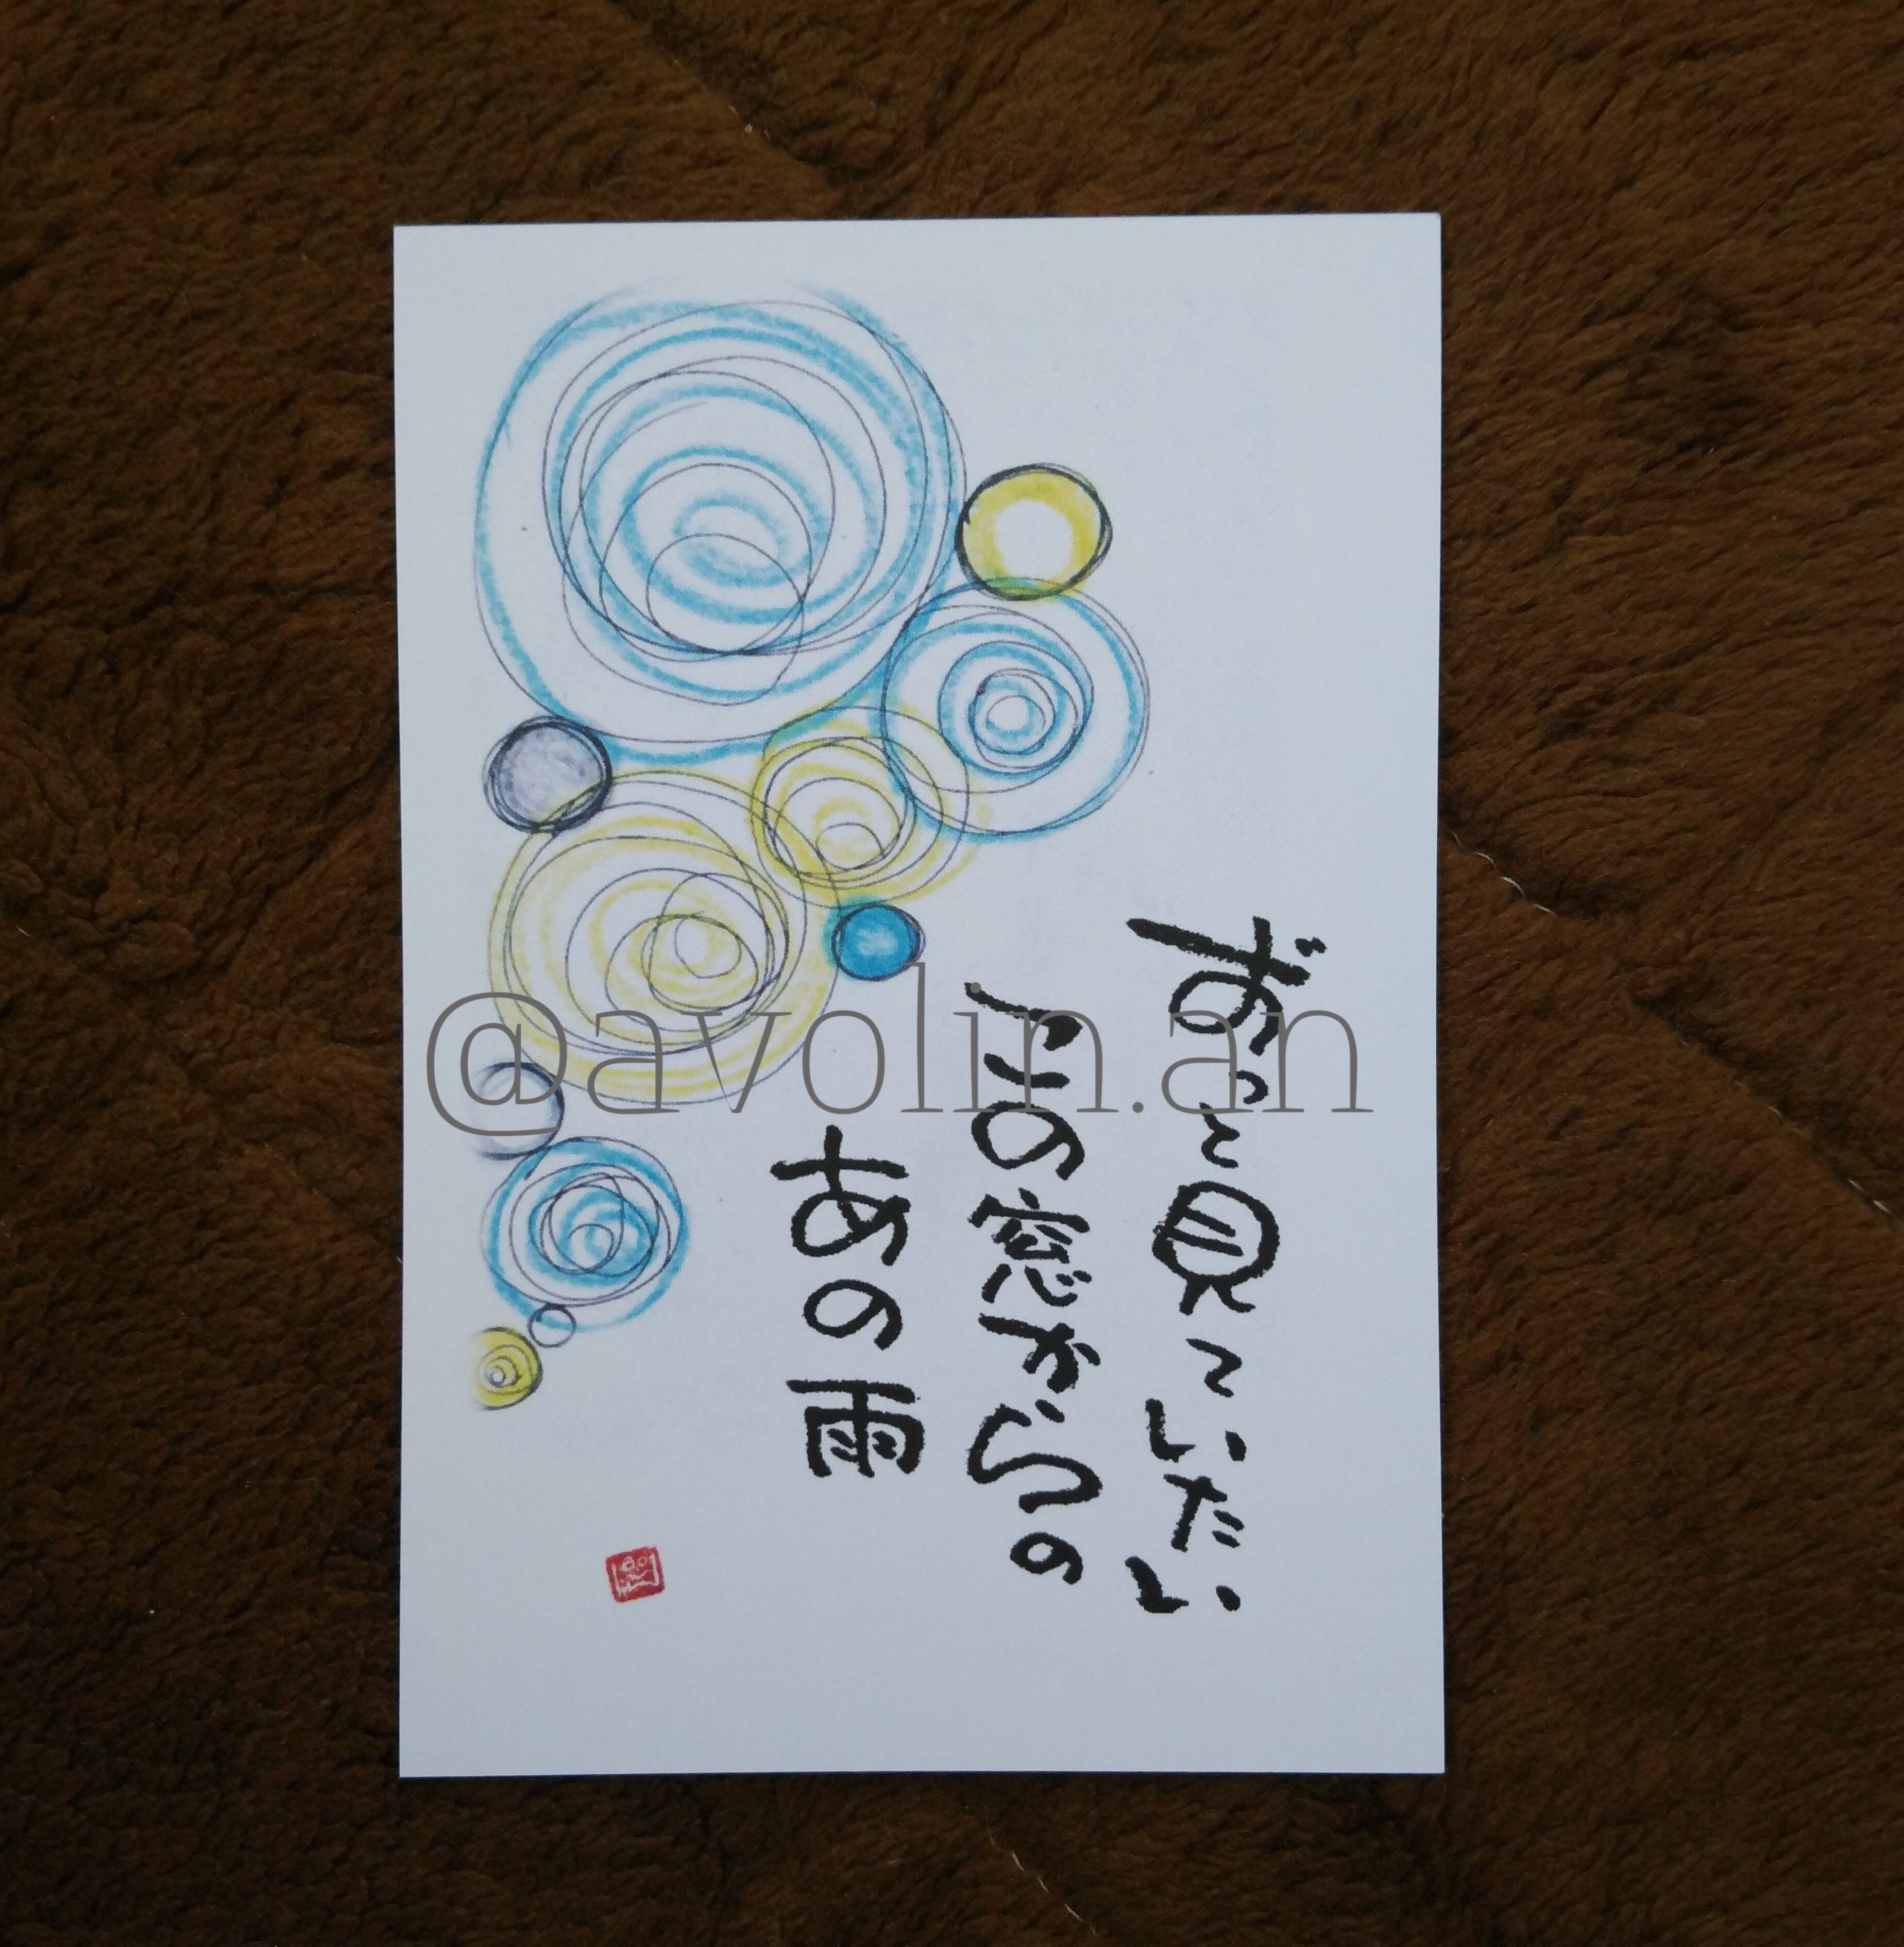 ずっと見ていたい
の窓からの
あの雨
@avolin.an